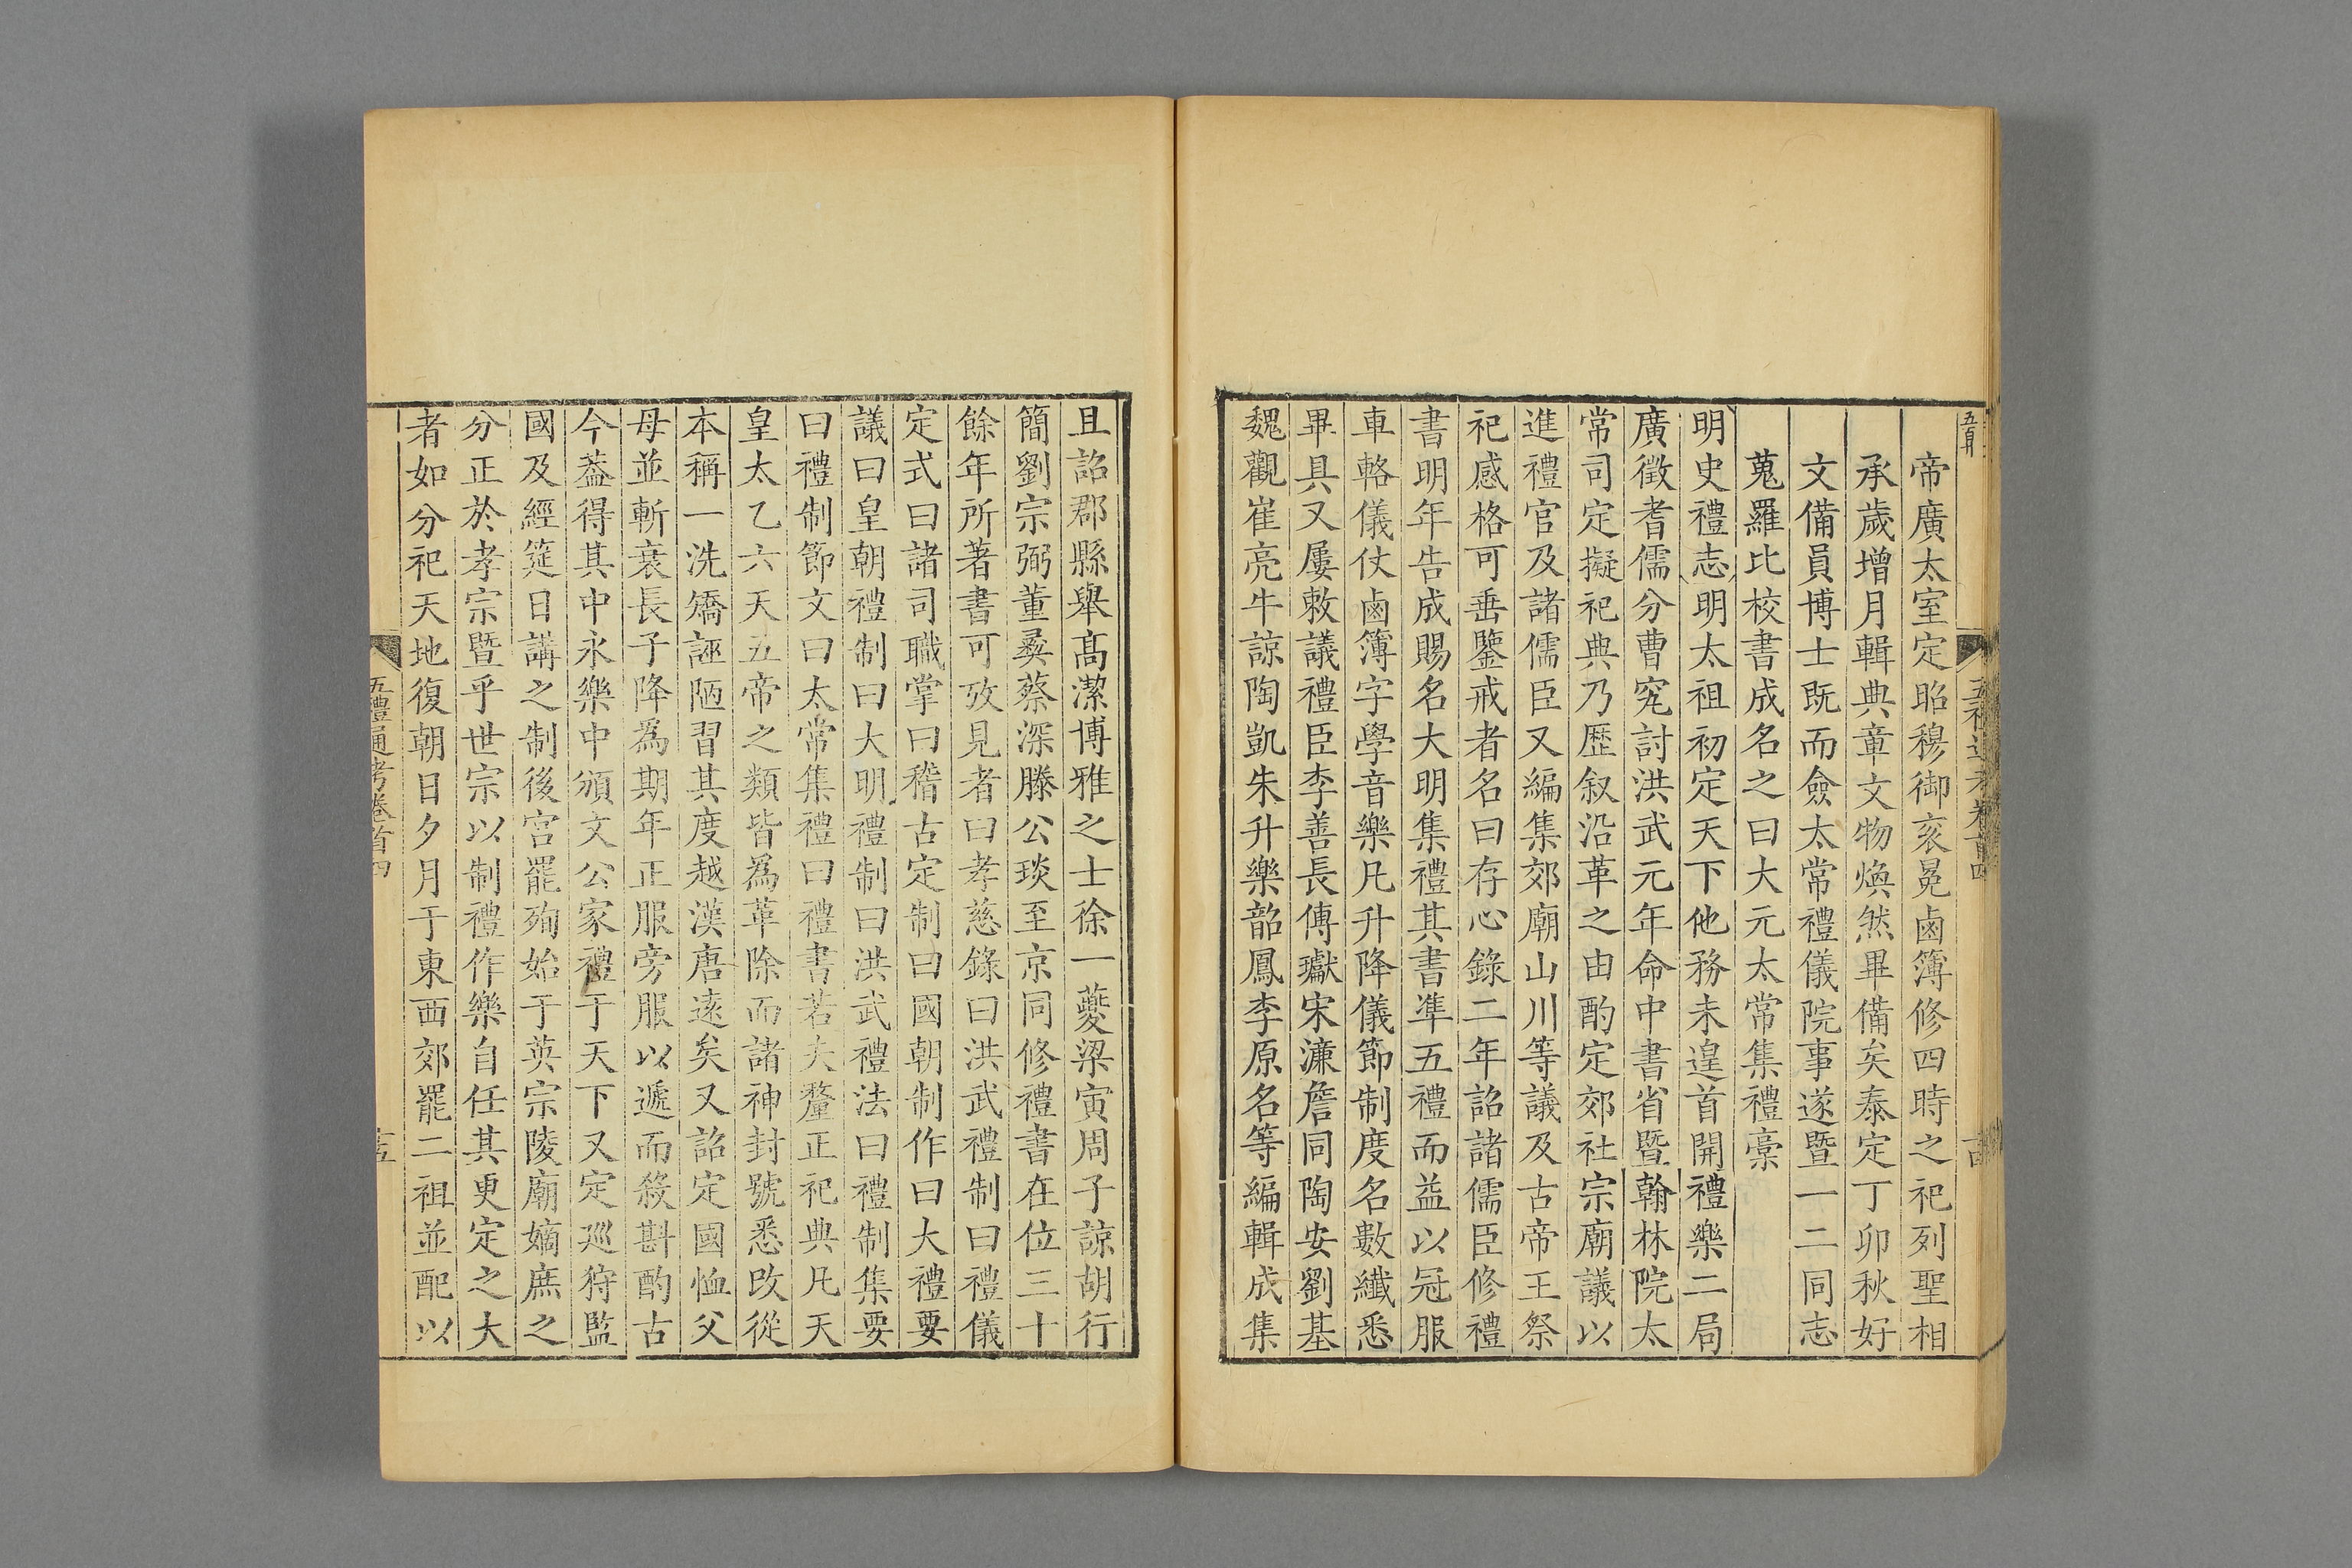 帝廣太室定昭穆御袞冕鹵簿修四時之祀列聖相
承歲增月輯典章文物煥然畢備矣泰定丁卯秋好
文備員博士既而僉太常禮儀院事遂暨一二同志
蒐羅比校書成名之曰大元太常集禮藁
明史禮志明太祖初定天下他務未遑首開禮樂二局
廣徴耆儒分曹究討洪武元年命中書省暨翰林院太
常司定擬祀典乃歷叙沿革之由酌定郊社宗廟議以
進禮官及諸儒臣又編集郊廟山川等議及古帝王祭
祀感格可垂鑒戒者名曰存心錄二年詔諸儒臣修禮
書明年告成賜名大明集禮其書凖五禮而益以冠服
車輅儀仗鹵簿字學音樂凡升降儀節制度名數纖悉
畢具又屢敕議禮臣李善長傅瓛宋濂詹同陶安劉基
魏觀崔亮牛諒陶凱朱升樂韶鳳李原名等編輯成集
且詔郡縣舉髙潔博雅之士徐一夔梁寅周子諒胡行
簡劉宗弼董彝蔡深滕公琰至京同修禮書在位三十
餘年所著書可攷見者曰孝慈錄曰洪武禮制曰禮儀
定式曰諸司職掌曰稽古定制曰國朝制作曰大禮要
議曰皇朝禮制曰大明禮制曰洪武禮法曰禮制集要
曰禮制節文曰太常集禮曰禮書若夫釐正祀典凡天
皇太乙六天五帝之類皆爲革除而諸神封號悉改從
本稱一洗矯誣陋習其度越漢唐逺矣又詔定國恤父
母並斬衰長子降爲期年正服旁服以遞而殺斟酌古
今葢得其中永樂中頒文公家禮于天下又定巡狩監
國及經筵日講之制後宫罷殉始于英宗陵廟嫡庶之
分正於孝宗暨乎世宗以制禮作樂自任其更定之大
者如分祀天地復朝日夕月于東西郊罷二祖並配以
五禮通考卷首四